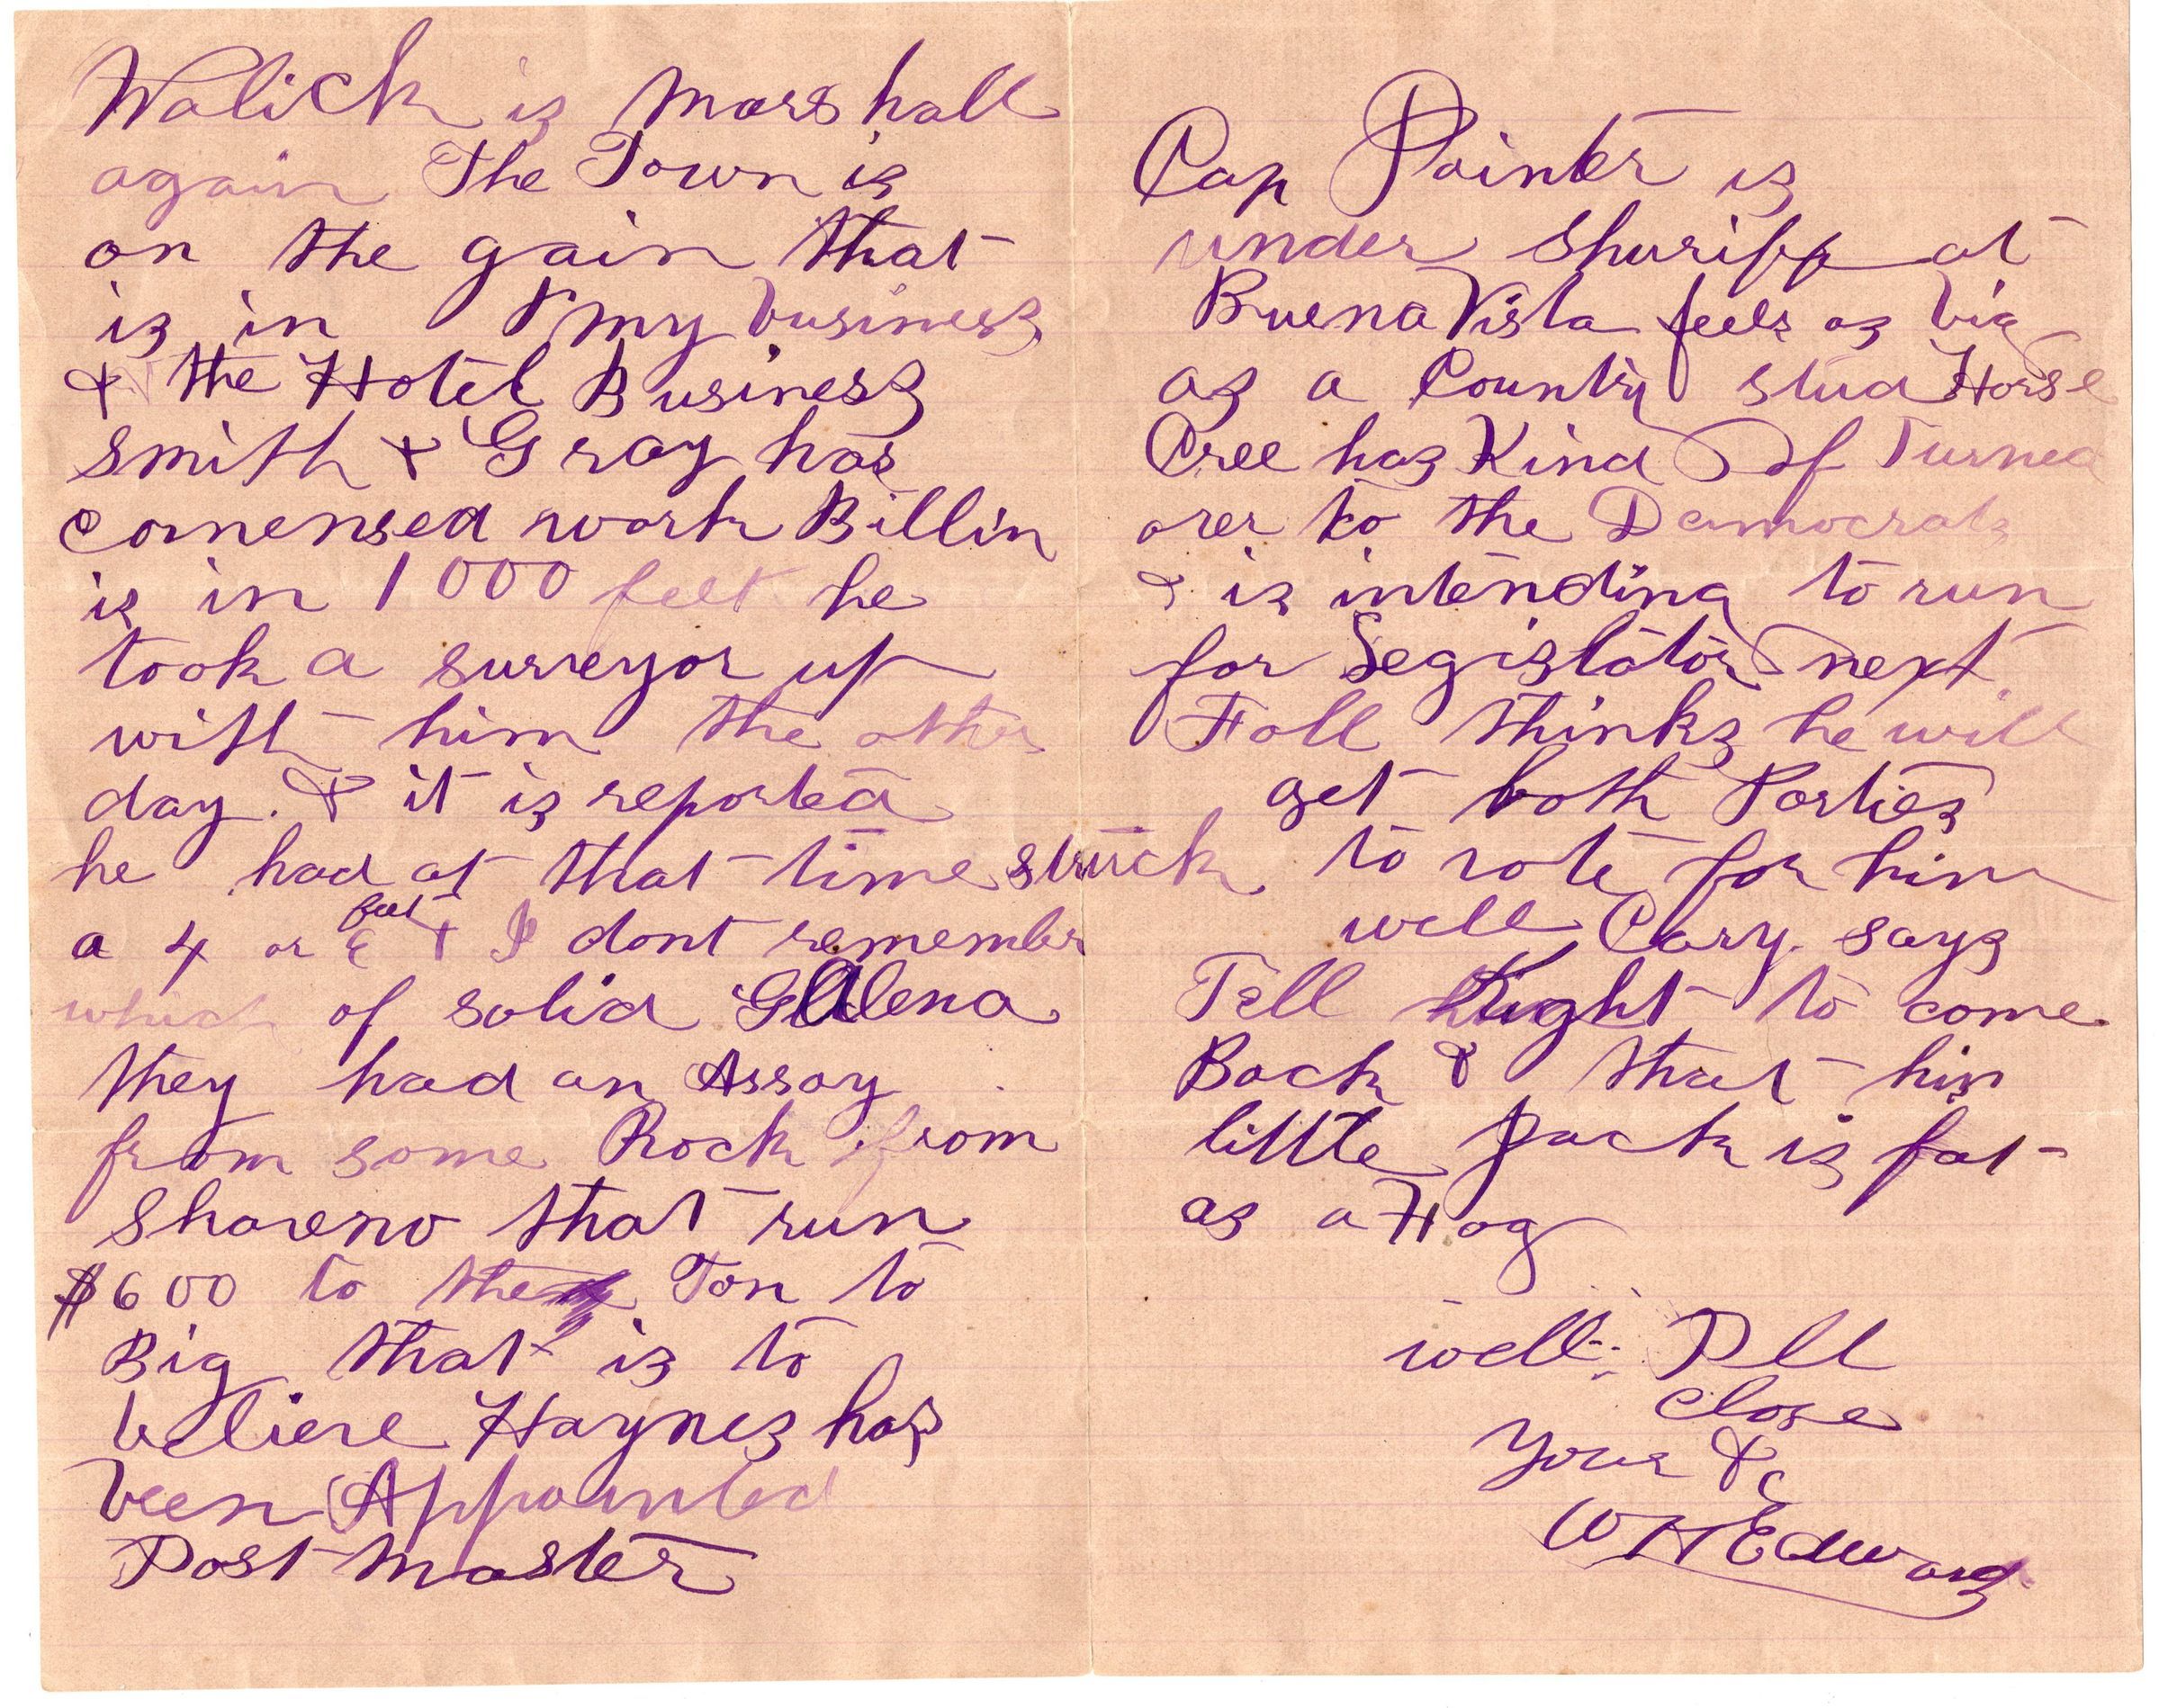 Walick is Marshall
again The Town is
on the gain that
is in my business
& the Hotel Business
Smith & Gray has
Comensed work Billin
is in 1000 feet he
took a surveyor up
with him the other
day. & it is reported
he had at that time struck
a 4 or feet & I dont remember
which of solid Galena
they had an Assay
from some Rock from
Shaveno that run
$600 to the Ton to
Big that is to
believe Haynes has
been Appointed
Post Master
Cap Painter is
under Shuriff at
Buena Vista feels as big
as a County stud Horse
Cree has Kind Of Turned
over to the Democrats
& is intending to run
for Legislator next
Fall thinks he will
get both Parties
to vote for him
well Cary. says
Tell to come
Back & that his
little Jack is fat
as a Hog
well I'll
close
Yours &c
W H Edwards